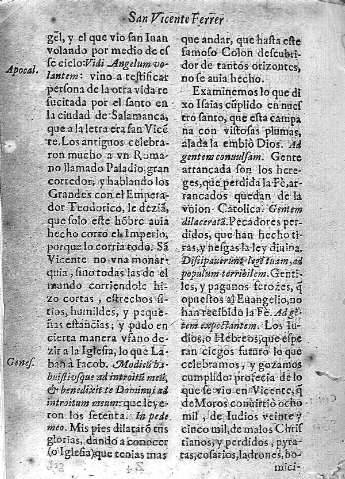 San Vicente Ferrer
gel, y el que vio san Iuan
volando por medio de es
se cielo: Vidi Angelum vo
Apocal.
lantem: vino a testificar
persona de la otra vida re
sucitada por el santo en
la ciudad de Salamanca,
que a la letra era san Vicẽ
te. Los antiguos celebra-
ron mucho a vn Roma-
no llamado Paladio, gran
corredor, y hablando los
Grandes con el Empera-
dor Teodorico, le deziã,
que solo este hõbre auia
hecho corto el Imperio,
porque lo corria todo. Sã
Vicente no vna monar-
quia, sino todas las de el
mundo corriendole hi-
zo cortas, estrechos si-
tios, humildes, y peque-
ñas estancias; y pudo en
cierta manera vsano de-
zir a la Iglesia, lo que La-
Genes.
bã à Iacob. Modicũ ha-
buistis, que ad introitũ meũ,
& benedixit te Dominus ad
introitum meum: que leye-
ron los setenta. In pede
meo. Mis pies dilatarõ tus
glorias, dando a conocer
(o Iglesia) que tenias mas
que andar, que hasta este
famoso Colon descubri-
dor de tantos orizontes,
no se auia hecho.
Examinemos lo que di
xo Isaias cũplido en nues
tro santo, que esta campa
na con vistosas plumas,
alada la embiò Dios. Ad
gentem conuulsam. Gente
arrancada son los here-
ges, que perdida la Fè, ar-
rancados quedan de la
vnion Catolica. Gentem
dilaceratã. Pecadores per-
didos, que han hecho ti-
ras, y nesgas la ley diuina.
Dissipauerunt legẽ tuam, ad
populum terribilem. Genti-
les, y paganos ferozes, q̃
opuestos al Euangelio, no
han recibido la Fè. Ad gẽ
tem expectantem. Los Iu-
dios, o Hebreos, que espe
ran ciegos futuro lo que
celebramos, y gozamos
cumplido: profecia de lo
que se vio en Vicente, q̃
de Moros conuirtiò ocho
mil, de Iudios veinte y
cinco mil, de malos Chris
tianos, y perdidos, pyra-
tas, cosarios, ladrones, ho
mici-